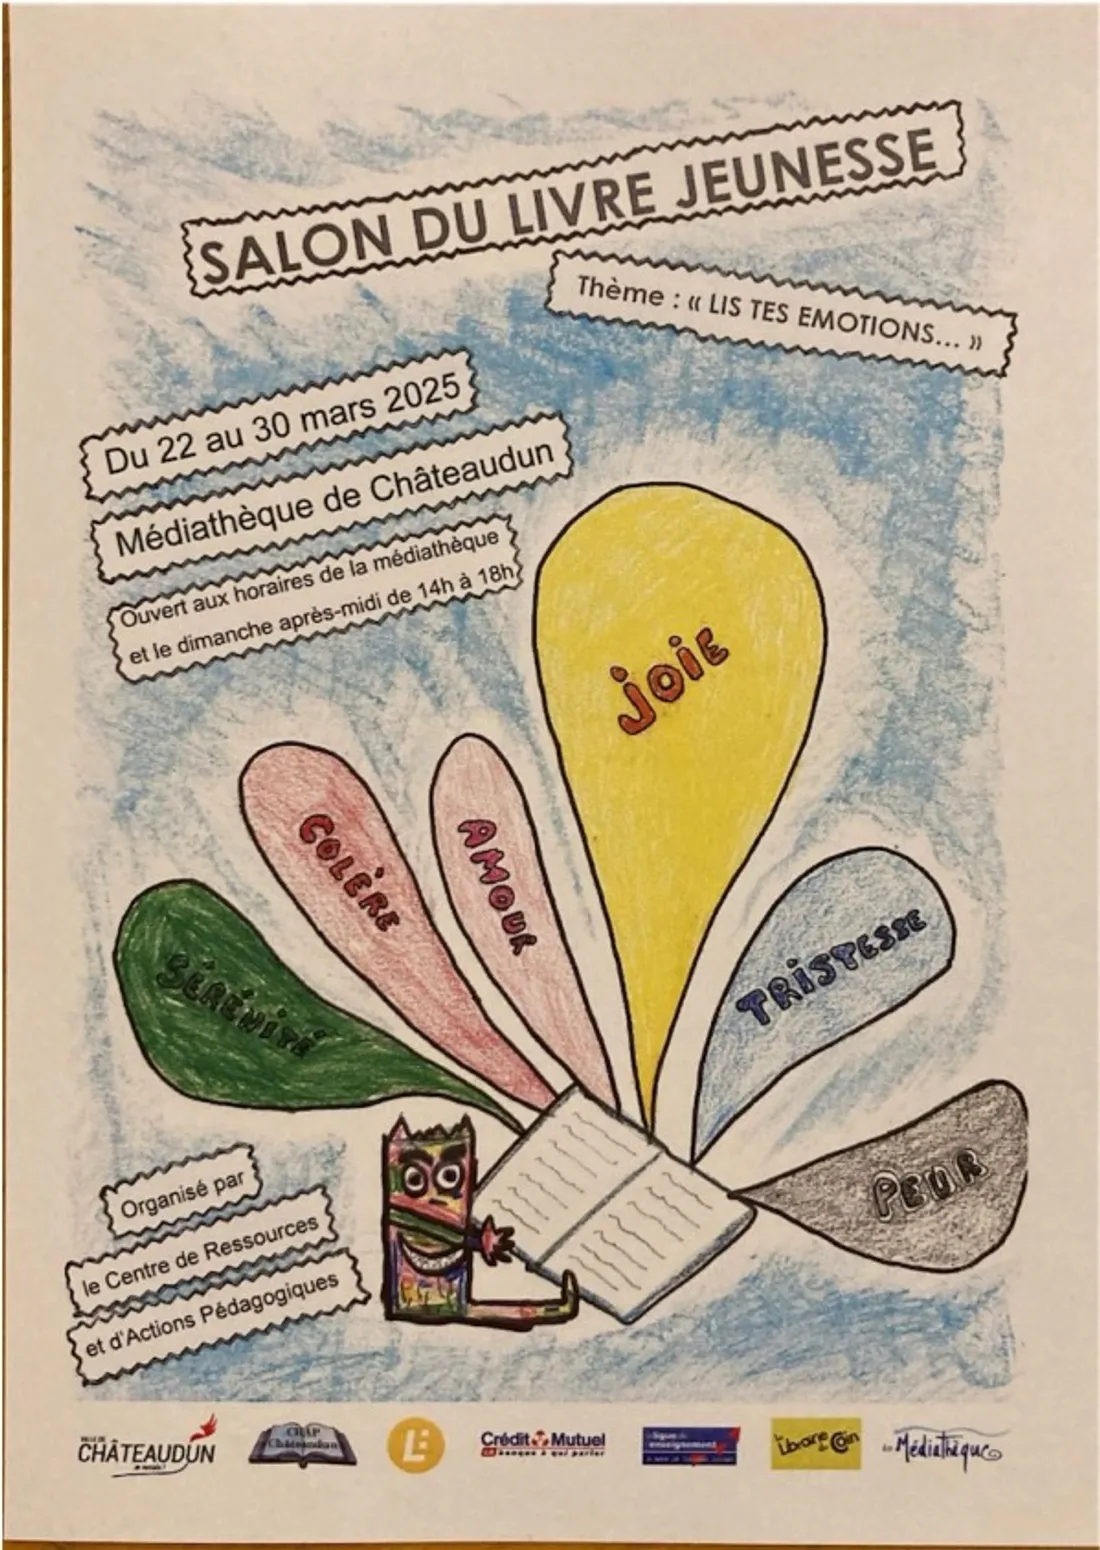 SALON DU LIVRE JEUNESSE
Thème : « LIS TES EMOTIONS... »
Du 22 au 30 mars 2025
Médiathèque de Châteaudun
Ouvert aux horaires de la médiathèque
et le dimanche après-midi de 14h à 18h
JOIE
COLÈRE
AMOUR
SÉRÉNITÉ
TRISTESSE
PEUR
Organisé par
le Centre de Ressources
et d'Actions Pédagogiques
VILLE DE
CHÂTEAUDUN
CRAP
Châteaudun
LE
Crédit Mutuel
LA banque à qui parler
la ligue de
enseignement
La Librairie du Coin
la Médiathèque